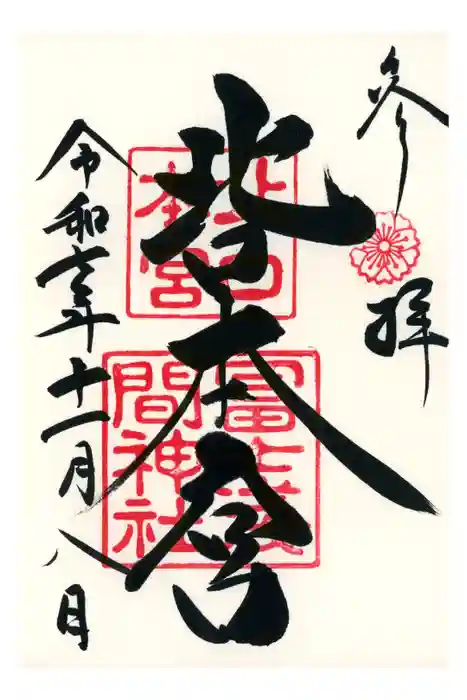 参拝
北口本宮
北口本宮
冨士浅間神社
令和六年十一月八日